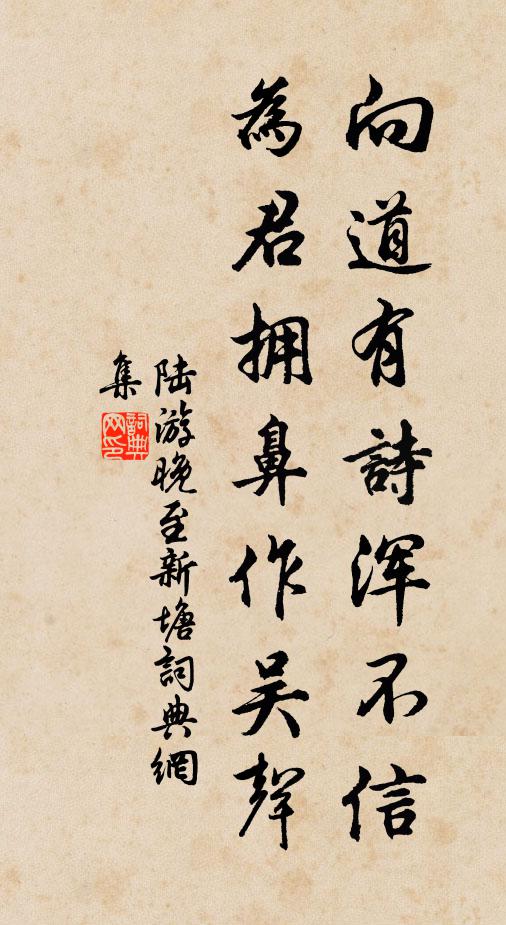 向道有詩渾不信
為君拥鼻作吴聲
陆游晚至新塘詞典網
集
詞典网印